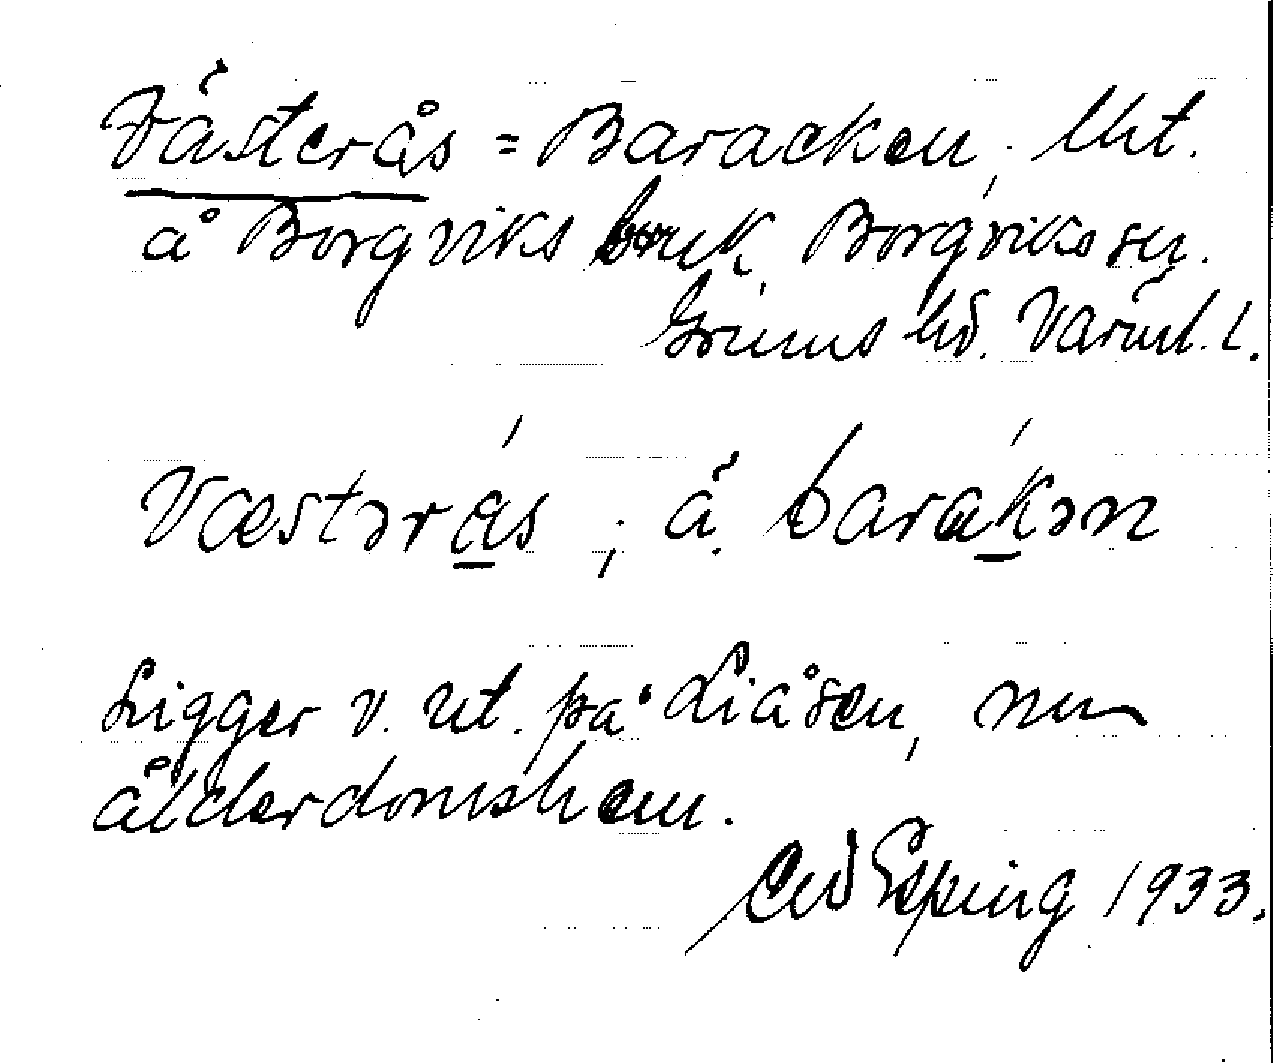 Västerås = Baracken, lht.
å Borgviks bruk, Borgviks sn.
Grums hd. Värml. l.
Væstərås, å barakən
Ligger v. ut. på Liåsen, nu
ålderdomshem.
Esping 1933.